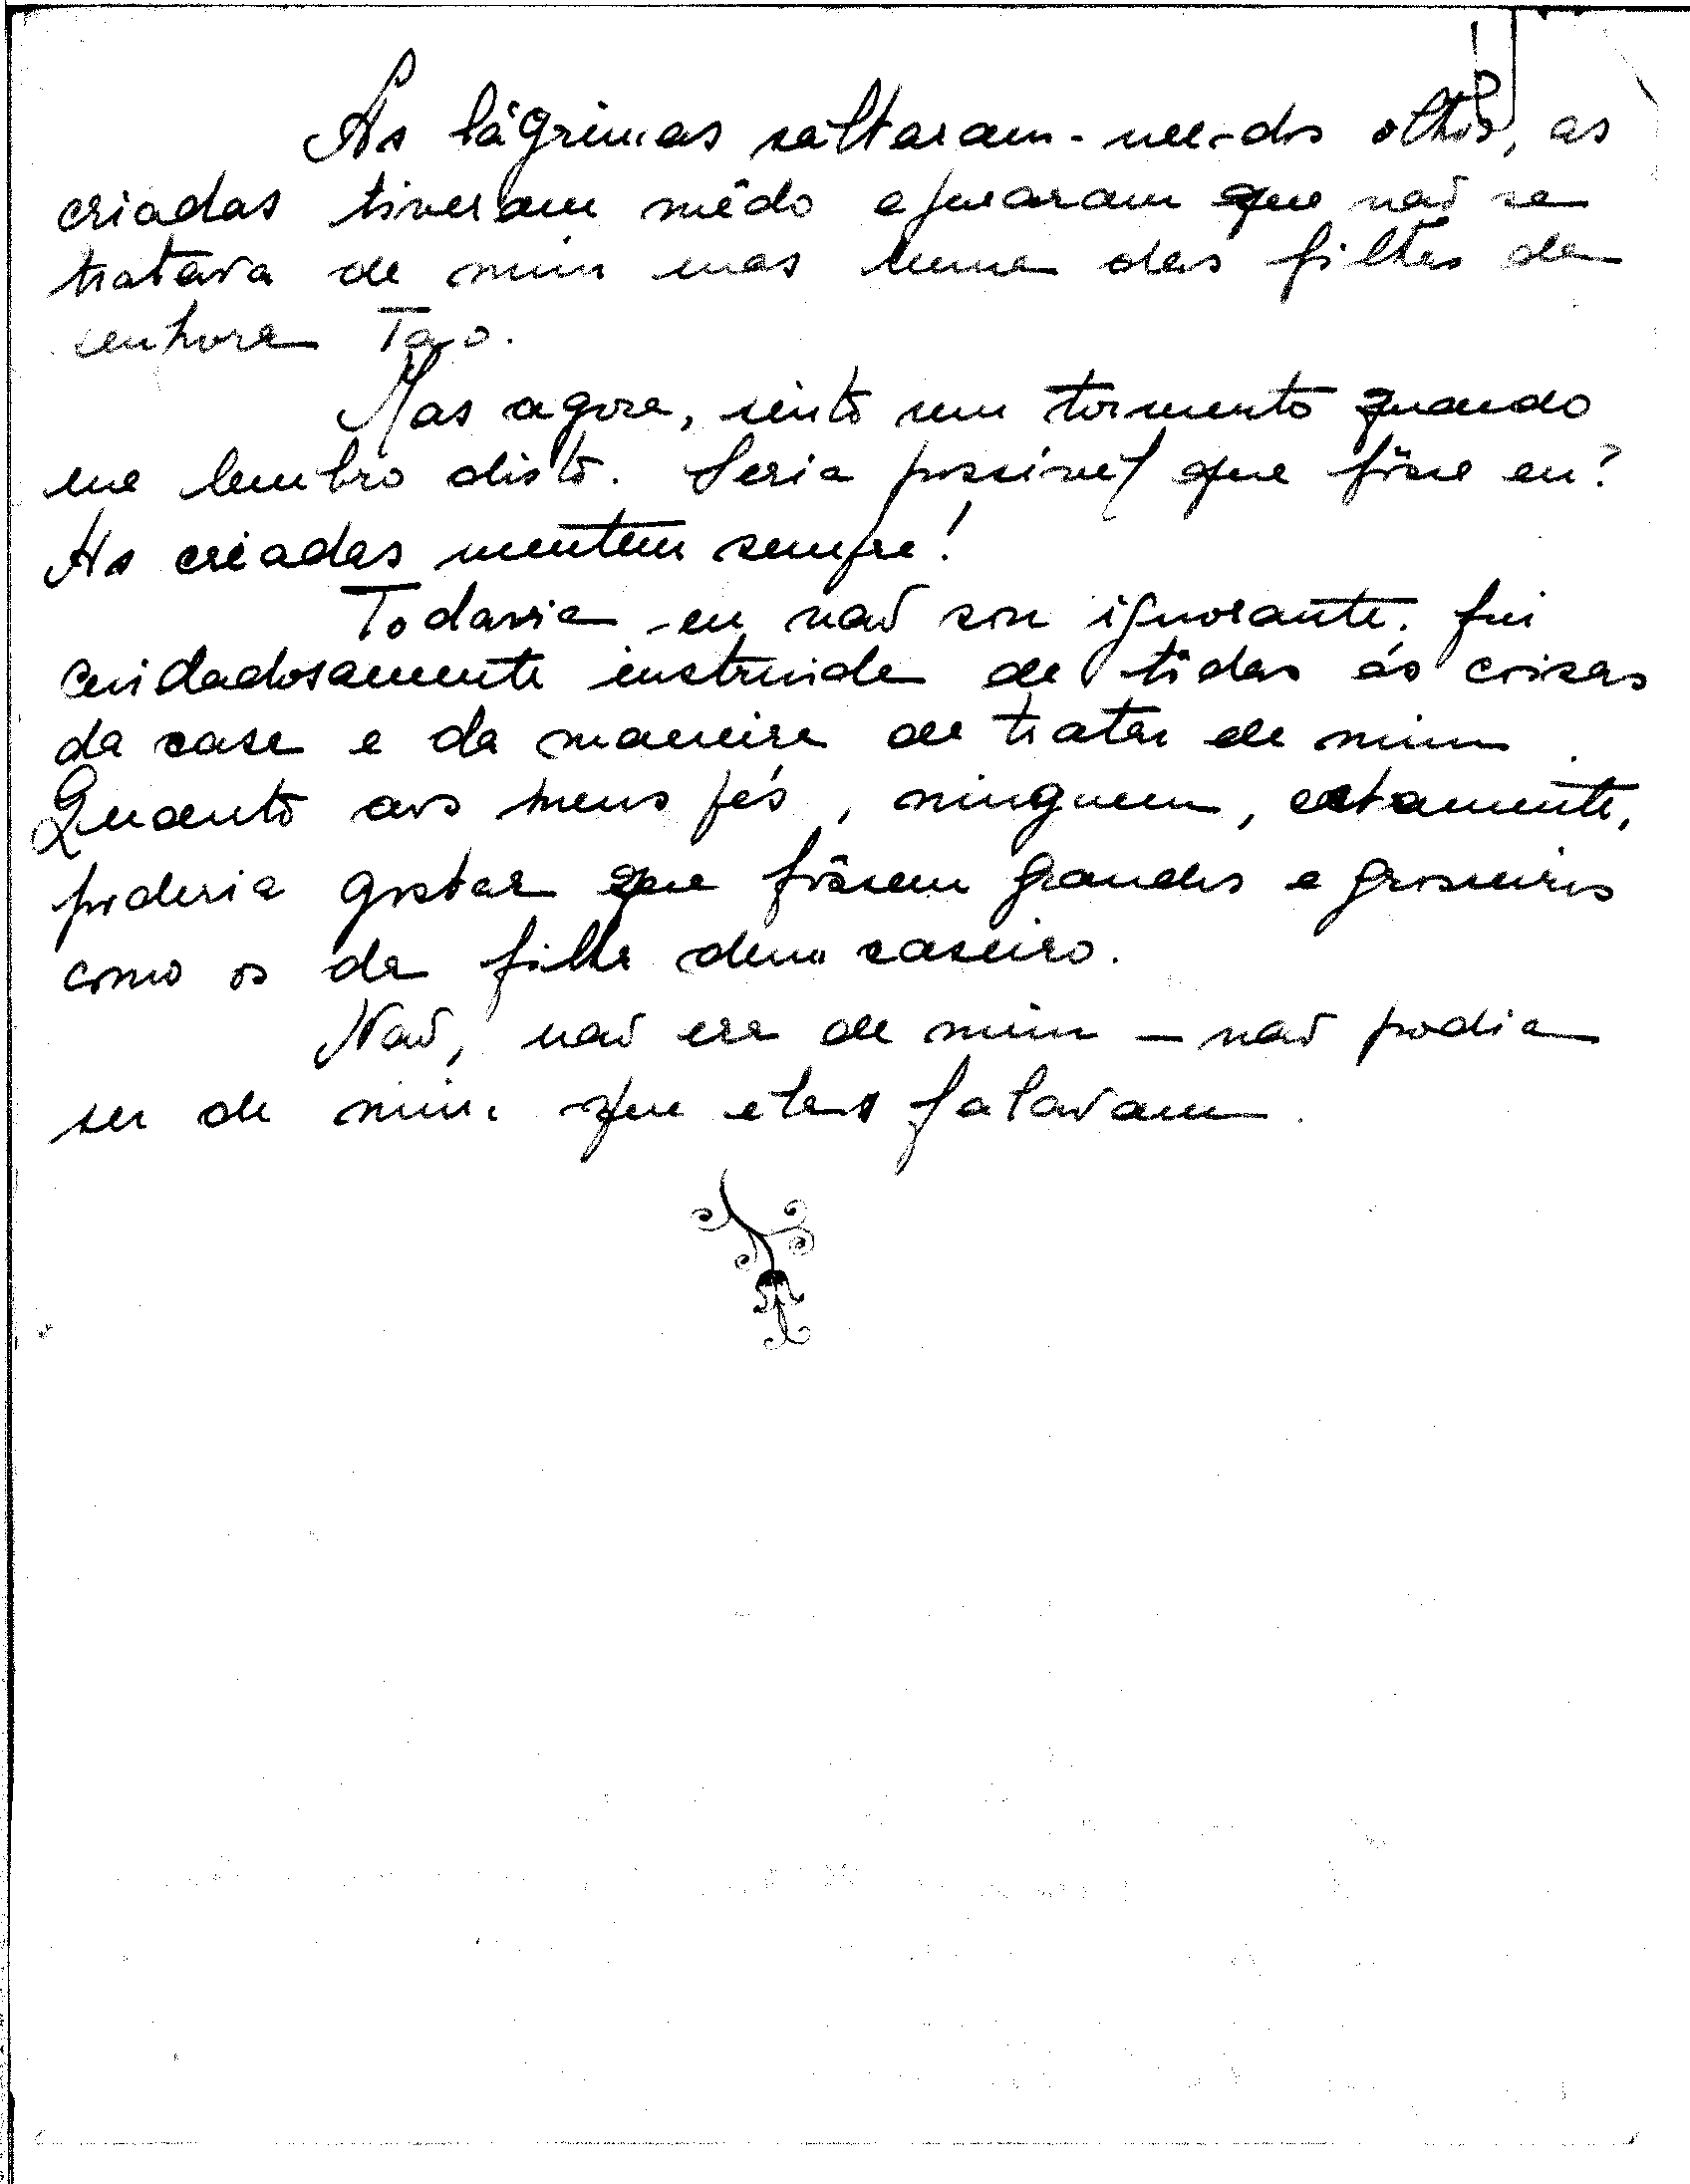 As lágrimas saltaram-me dos olhos, as
criadas tiveram mêdo e juraram que não se
tratava de mim mas duma das filhas da
senhora Tao.
Mas agora, sinto um tormento quando
me lembro disto. Seria possível que fôsse eu?
As criadas mentem sempre!
Todavia eu não sou ignorante. fui
cuidadosamente instruida de tôdas as coisas
da casa e da maneira de tratar de mim.
Quanto aos meus pés, ninguem, certamente,
poderia gostar que fôssem grandes e grosseiros
como os da filha dum caseiro.
Não, não era de mim – não podia
ser de mim que elas falavam.